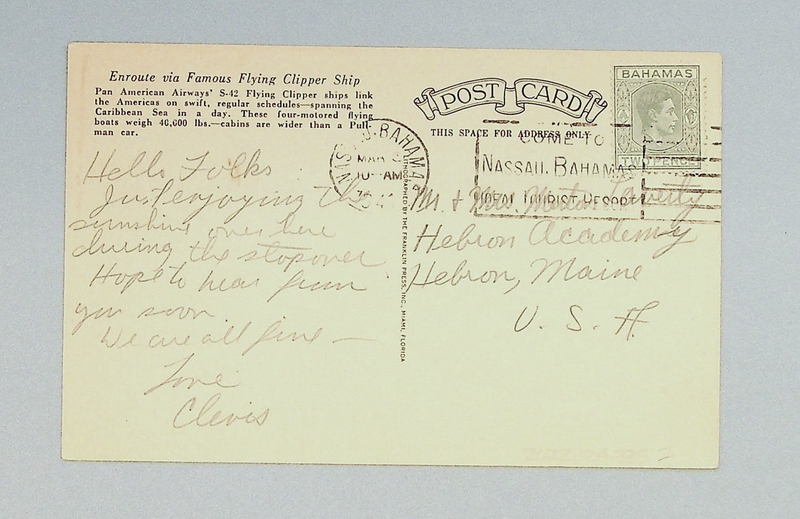 Enroute via Famous Flying Clipper Ship
Pan American Airways' S-42 Flying Clipper ships link
the Americas on swift, regular schedules—spanning the
Caribbean Sea in a day. These four-motored flying
boats weigh 40,600 lbs.—cabins are wider than a Pull-
man car.
Hello Folks
Just enjoying the
sunshine over here
during the stopover
Hope to hear from
you soon
We are all fine —
Love
Clevis
LITHOGRAPHED BY THE FRANKLIN PRESS, INC., MIAMI, FLORIDA
POST CARD
THIS SPACE FOR ADDRESS ONLY
BAHAMAS
TWO PENCE
BAHAMA
MAR
10 AM
COME TO
NASSAU, BAHAMAS
IDEAL TOURIST RESORT
Mr. & Mrs.
Hebron Academy
Hebron, Maine
U. S. A.